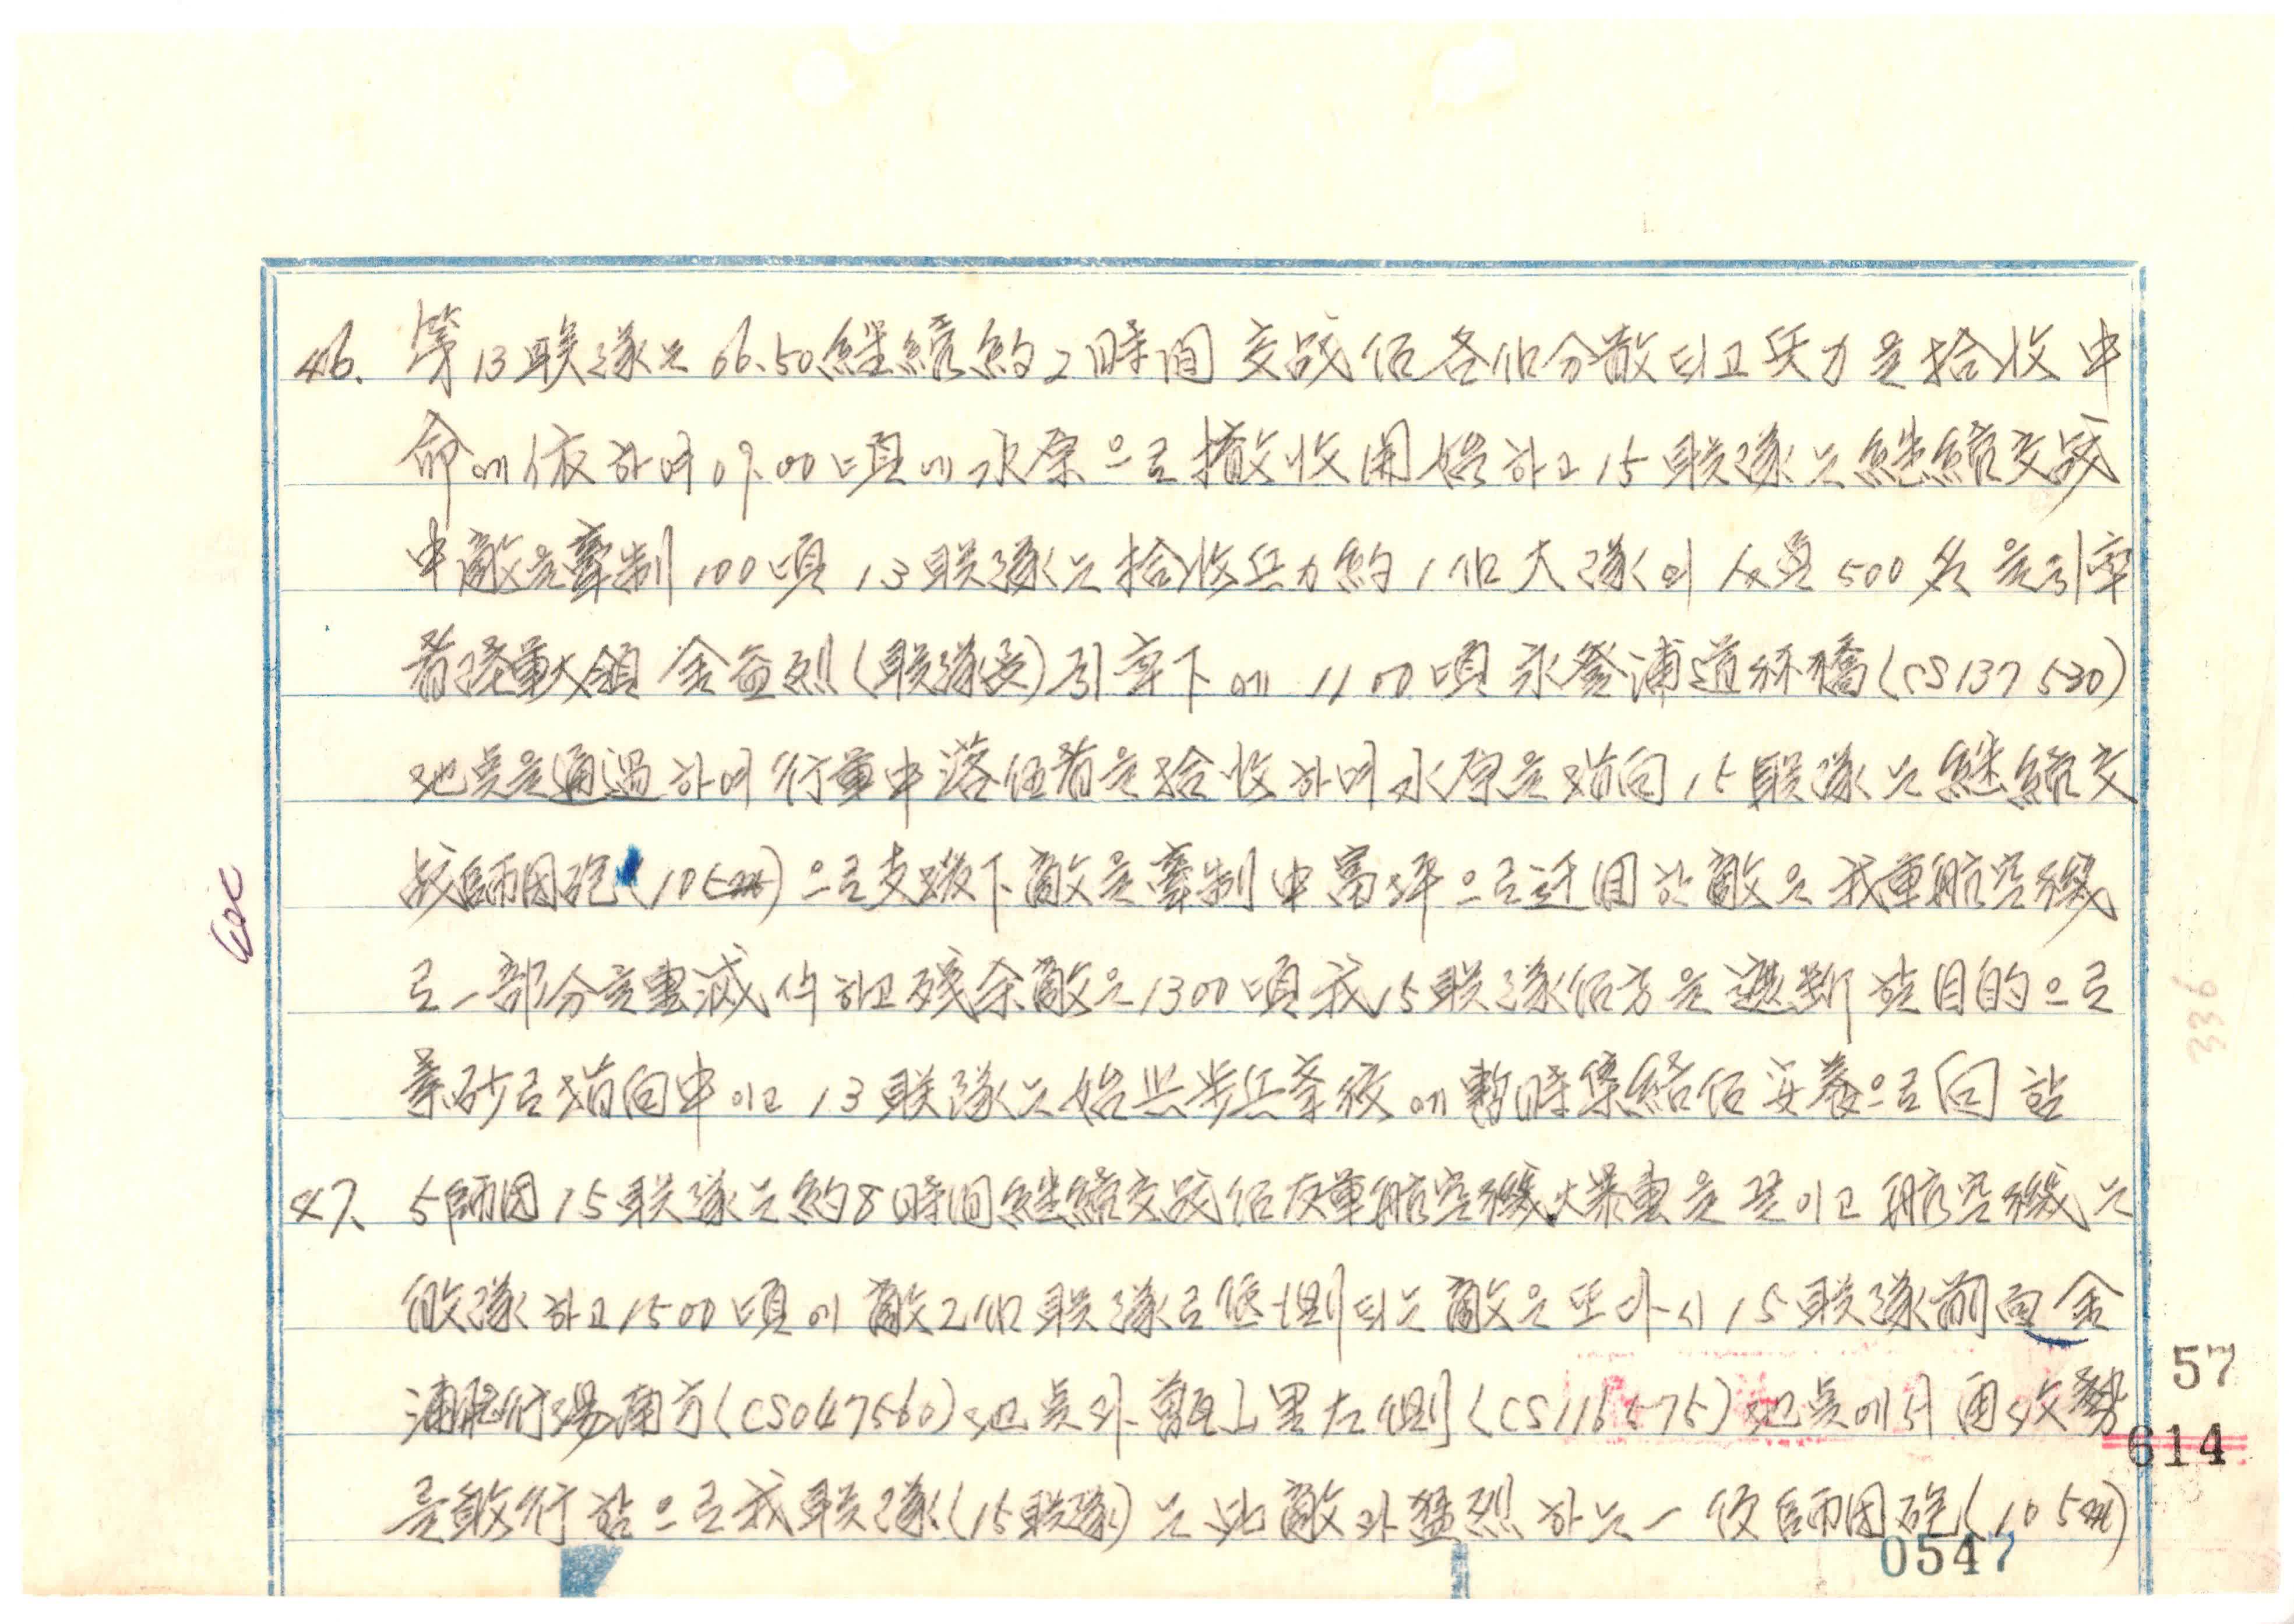 46. 第13联隊는 06.50 継續 約 2時間 交戰 后 各 個 分散되고 兵力을 拾收 中
命에 依하여 09.00頃에 水原으로 撤收 開始하고 15联隊는 継續 交戰
中 敵을 牽制 1100頃 13联隊는 拾收兵力 約 1個 大隊의 人員 500名을 引率
者 陸軍大領 金益烈(联隊長) 引率下에 1100頃 永登浦 道林橋(CS137530)
地点을 通過하여 行軍中 落伍者을 拾收하며 水原을 指向 15联隊는 継續 交
戰 師団砲(105㎜)으로 支援下 敵을 牽制 中 富坪으로 迂回한 敵은 我軍 航空機
로 一部分을 擊滅 하고 残余 敵은 1300頃 我 15联隊 后方을 遮断할 目的으로
素砂로 指向中이고 13联隊는 始興 步兵学校에 暫時 集結 后 安養으로 向함
47. 5師団 15联隊는 約 8時間 継續 交戰 后 友軍 航空機 大爆擊을 고 航空機는
隊하고 1500頃에 敵 2個 联隊로 되는 敵은 또 다시 15联隊 前面 金
浦飛行場 南方(CS047560) 地点과 里 左側(CS116575) 地点에서 再攻勢
를 敢行함으로 我 联隊(15联隊)는 此 敵과 猛烈하는 一便 師団砲(105㎜)
57
614
0547
336